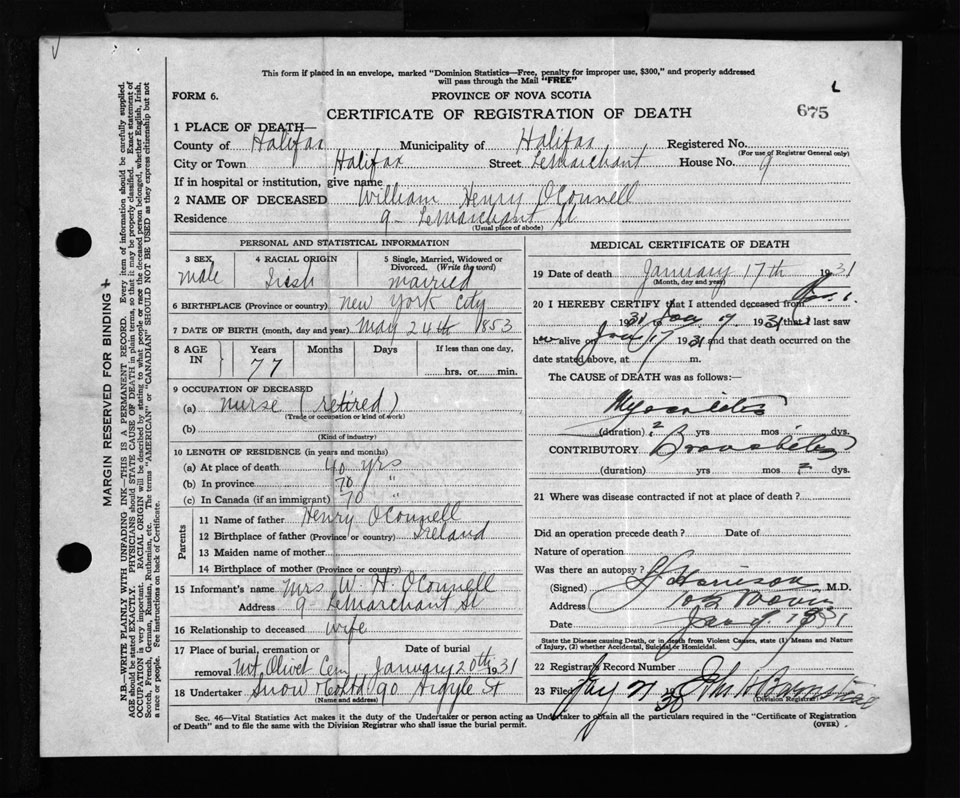 This form if placed in an envelope, marked "Dominion Statistics—Free, penalty for improper use, $300," and properly addressed
will pass through the Mail "FREE"
L
FORM 6.
PROVINCE OF NOVA SCOTIA
CERTIFICATE OF REGISTRATION OF DEATH
675
1 PLACE OF DEATH—
County of Halifax Municipality of Halifax Registered No.
(For use of Registrar General only)
City or Town Halifax Street LeMarchant House No. 9
If in hospital or institution, give name
2 NAME OF DECEASED William Henry O'Connell
Residence 9 - LeMarchant St.
(Usual place of abode)
PERSONAL AND STATISTICAL INFORMATION
3 SEX 4 RACIAL ORIGIN 5 Single, Married, Widowed or
Divorced. (Write the word)
male Irish married
6 BIRTHPLACE (Province or country) New York City
7 DATE OF BIRTH (month, day and year) May 24th 1853
8 AGE IN Years Months Days If less than one day,
77 hrs. or min.
9 OCCUPATION OF DECEASED
(a) Nurse (retired)
(Trade or occupation or kind of work)
(b)
(Kind of industry)
10 LENGTH OF RESIDENCE (in years and months)
(a) At place of death 40 yrs
(b) In province 70 "
(c) In Canada (if an immigrant) 70 "
Parents
11 Name of father Henry O'Connell
12 Birthplace of father (Province or country) Ireland
13 Maiden name of mother
14 Birthplace of mother (Province or country)
15 Informant's name Mrs W. H. O'Connell
Address 9 LeMarchant St
16 Relationship to deceased wife
17 Place of burial, cremation or Date of burial
removal Mt Olivet Cem January 20th 1931
18 Undertaker Snow & Co Ltd 90 Argyle St
(Name and address)
MEDICAL CERTIFICATE OF DEATH
19 Date of death January 17th 1931
(Month, day and year)
20 I HEREBY CERTIFY that I attended deceased from Jan. 1
1931 to Jan 17 1931 that I last saw
h alive on Jan 17 1931 and that death occurred on the
date stated above, at m.
The CAUSE of DEATH was as follows:
Myocarditis
(duration) ? yrs mos dys.
CONTRIBUTORY Bronchitis
(duration) yrs mos ? dys.
21 Where was disease contracted if not at place of death ?
Did an operation precede death ? Date of
Nature of operation
Was there an autopsy ?
(Signed) Harrison M.D.
Address
Date Jan 1931
State the Disease causing Death, or in death from Violent Causes, state (1) Means and Nature
of Injury, (2) whether Accidental, Suicidal or Homicidal.
22 Registrar's Record Number
23 Filed
(Division Registrar)
Sec. 46—Vital Statistics Act makes it the duty of the Undertaker or person acting as Undertaker to obtain all the particulars required in the "Certificate of Registration
of Death" and to file the same with the Division Registrar who shall issue the burial permit.
(OVER)
MARGIN RESERVED FOR BINDING
N.B.—WRITE PLAINLY WITH UNFADING INK—THIS IS A PERMANENT RECORD. Every item of information should be carefully supplied.
AGE should be stated EXACTLY. PHYSICIANS should STATE CAUSE OF DEATH in plain terms, so that it may be properly classified. Exact statement of
OCCUPATION is very important. RACIAL ORIGIN will be described by stating to what people or race the deceased person belonged, whether English, Irish,
Scotch, French, German, Russian, Ruthenian, etc. The terms "AMERICAN" or "CANADIAN" SHOULD NOT BE USED as they express citizenship but not
a race or people. See instructions on back of Certificate.